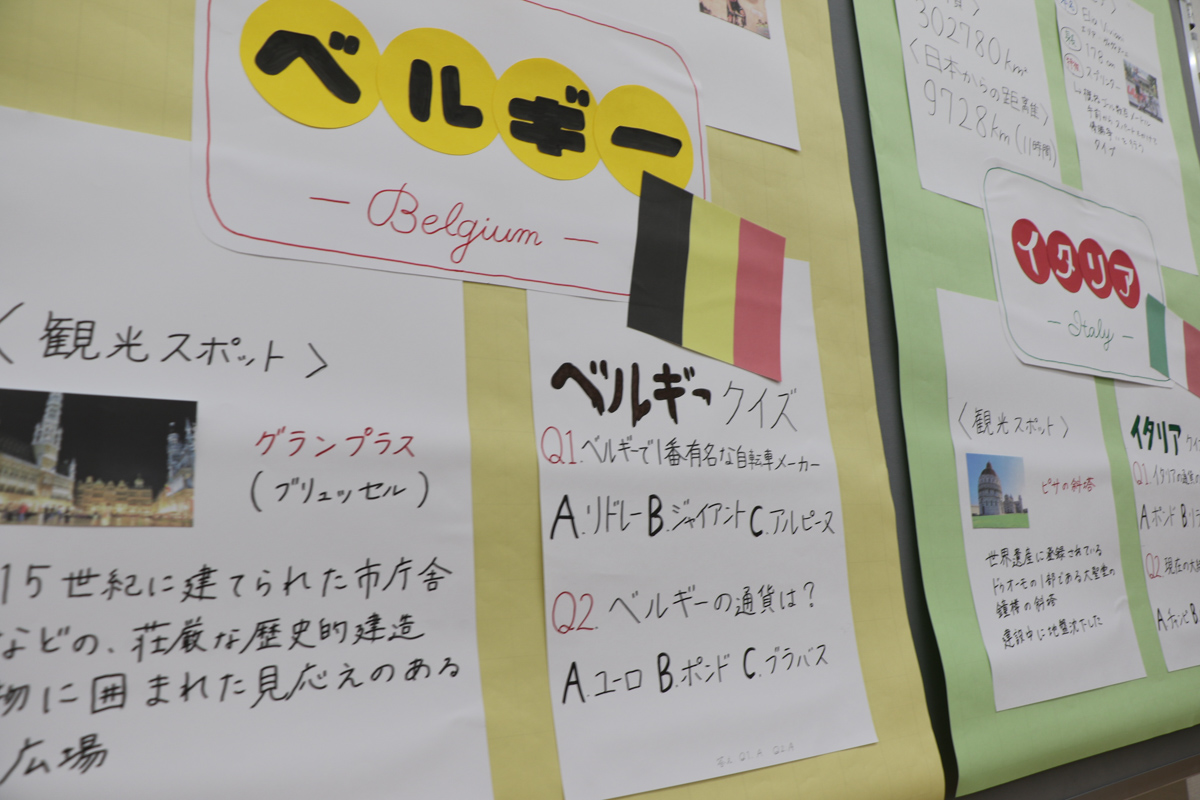 ベルギー
— Belgium —
〈観光スポット〉
グランプラス
(ブリュッセル)
15世紀に建てられた市庁舎
などの、荘厳な歴史的建造
物に囲まれた見応えのある
広場
ベルギークイズ
Q1.ベルギーで1番有名な自転車メーカー
A.リドレー B.ジャイアント C.アルピーヌ
Q2.ベルギーの通貨は?
A.ユーロ B.ポンド C.ブラバス
答え Q1.A Q2.A
302780km²
〈日本からの距離〉
9728km(11時間)
178cm
イタリア
— Italy —
〈観光スポット〉
ピサの斜塔
世界遺産に登録されている
ドゥオーモの1部である大聖堂の
鐘楼の斜塔
建設中に地盤沈下した
イタリア クイ
Q1.イタリアの通貨の
A.ポンド B.リラ
Q2.現在の大統